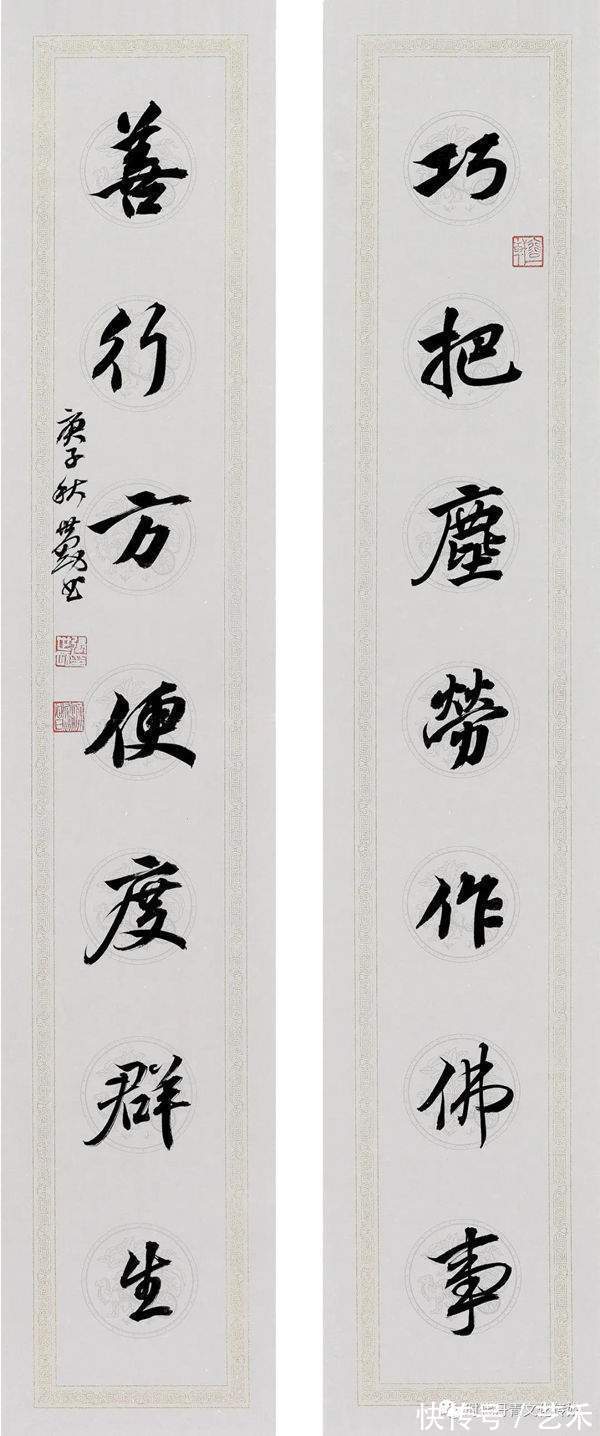 巧把塵勞作佛事
善行方便度群生
庚子秋 世勛書
快传号 / 艺禾